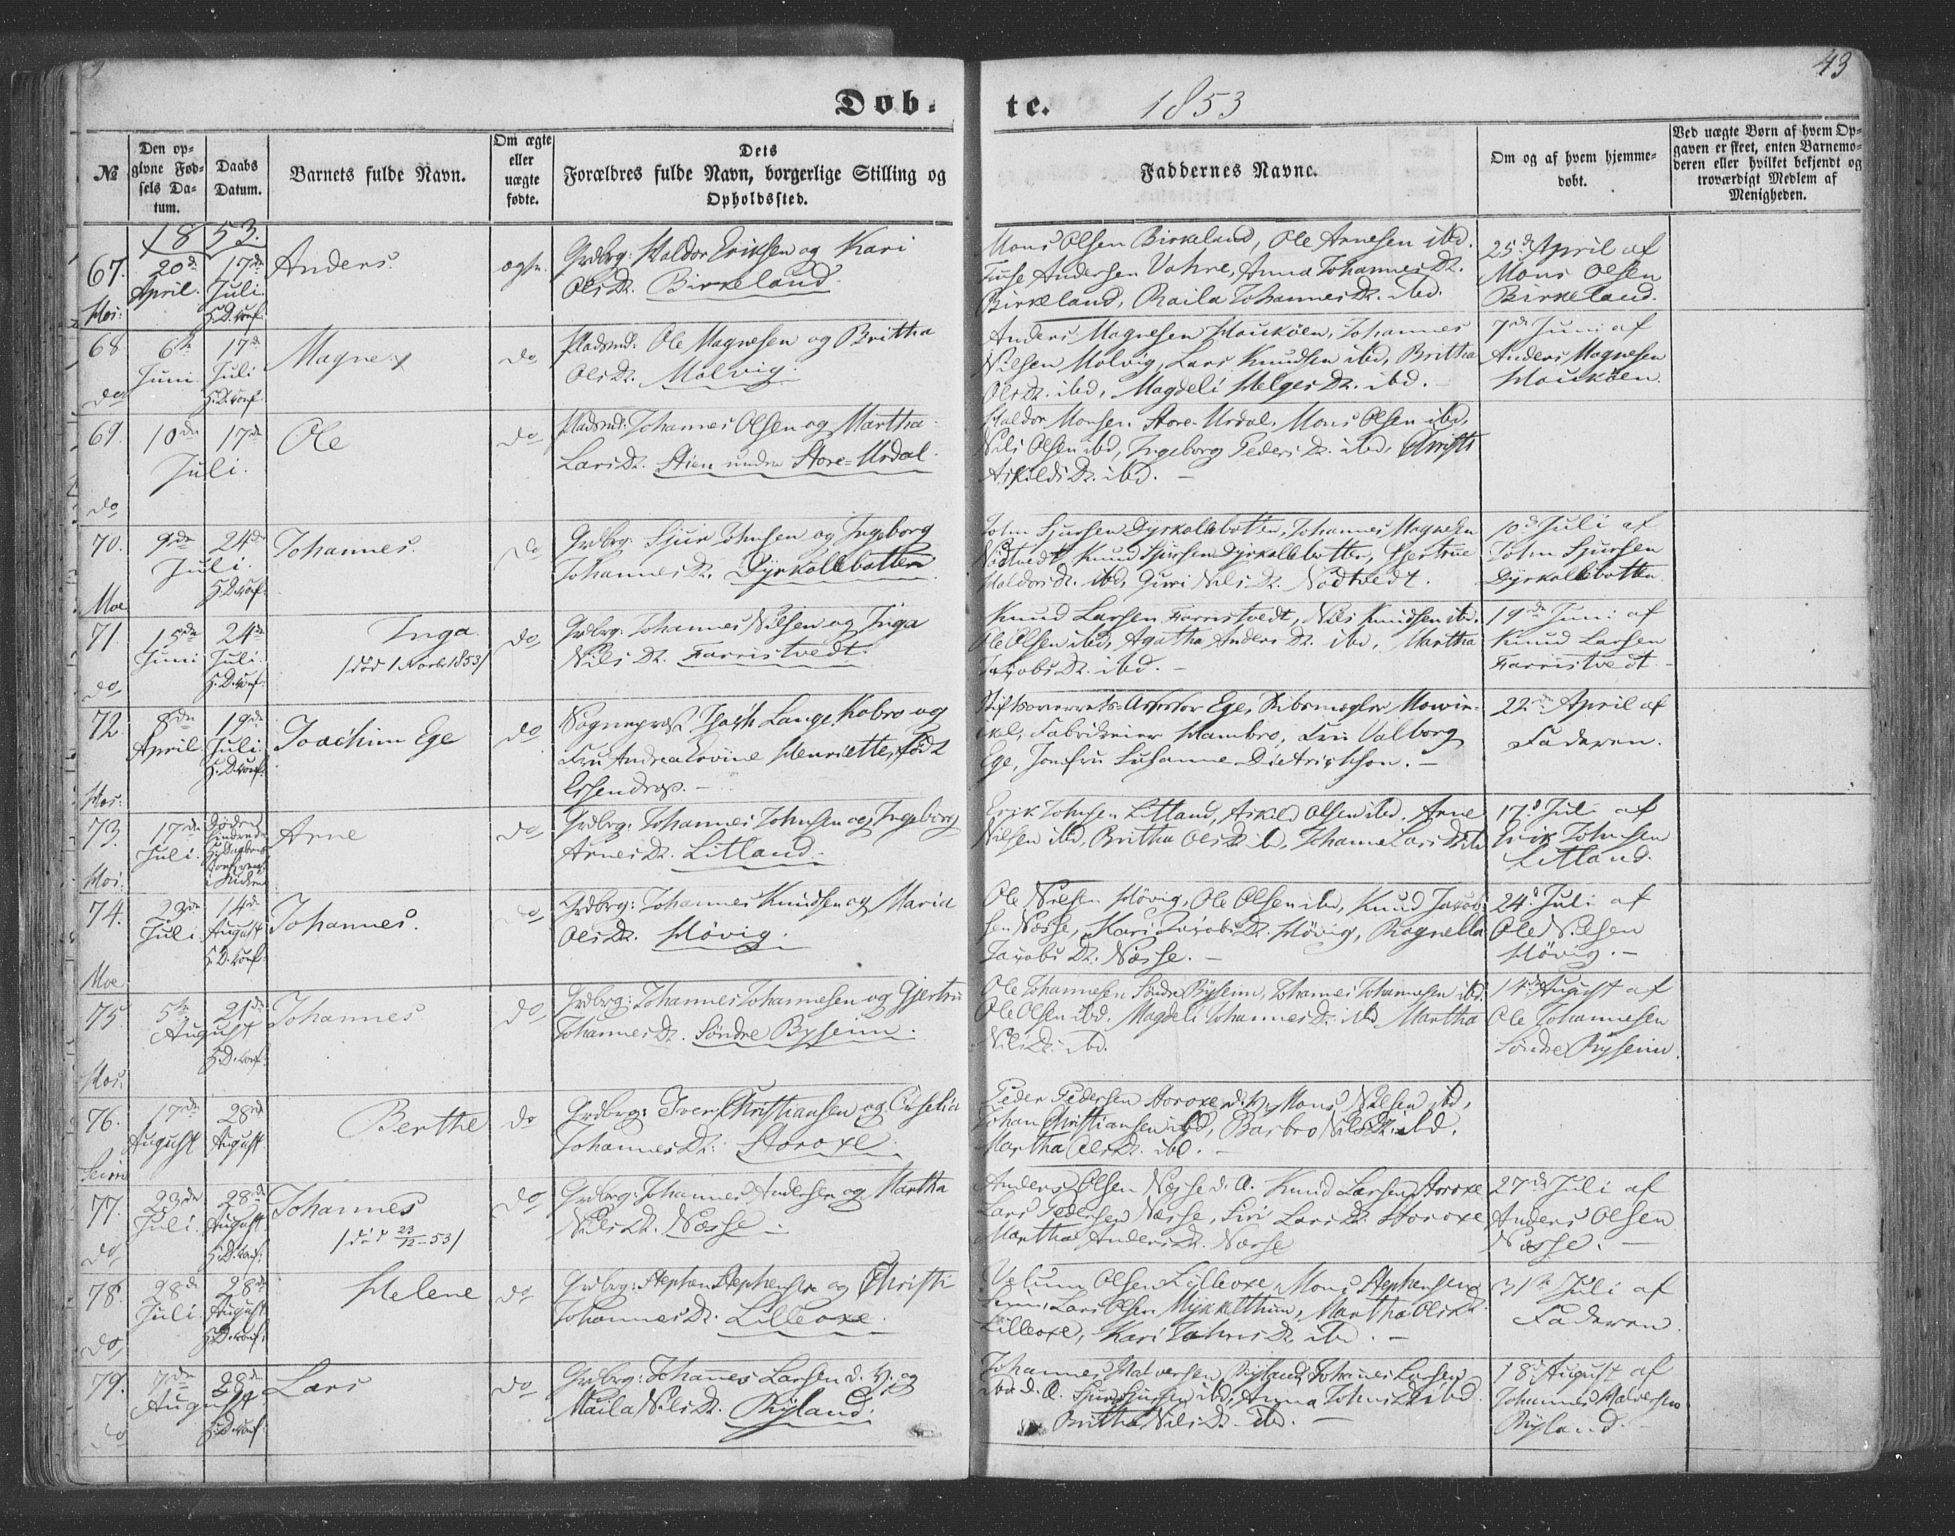 Døb-
te. 1853
43
№
Den op-
givne Fød-
sels Da-
tum.
Daabs
Datum.
Barnets fulde Navn.
Om ægte
eller
uægte
fødte.
Dets
Forældres fulde Navn, borgerlige Stilling og
Opholdssted.
Faddernes Navne.
Om og af hvem hjemme-
døbt.
Ved uægte Børn af hvem Op-
gaven er skeet, enten Barnemo-
deren eller hvilket bekjendt og
troværdigt Medlem af
Menigheden.
1853.
67. 20de April 17de Juli Anders. Grdbrg: Haldor Eriksen og Kari
Ols Dr. Birkeland.
Mons Olsen Birkeland, Ole Arnesen ibd.
Andersen Vahre, Anna Johannes Dr.
Birkeland, Raila Johannes Dr. ibd.
25de April af
Mons Olsen
Birkeland.
68. 6te Juni 17de Juli Magne do Pladsmd: Ole Magnesen og Brittha
Ols Dr. Molvig.
Anders Magnesen Houkøen, Johannes
Nilsen Molvig, Lars Knudsen ibd, Brittha
Ols Dr. ibd, Magdeli Helges Dr. ibd.
7de Juni af
Anders Magnesen
Houkøen.
do
69. 10de 17de Juli. Ole do Pladsmd: Johannes Olsen og Martha
Lars Dr. Stien under Store-Urdal.
Haldor Monsen Store-Urdal, Mons Olsen ibd,
Nils Olsen ibd, Ingeborg Peders Dr. ibd, Christi
Askilds Dr. ibd.
do
70. 9de 24de Juli. Johannes. do Grdbrg: Sjur Johnsen og Ingeborg
Johannes Dr. Dyrkollebotten
John Sjursen Dyrkollebotten, Johannes Magnesen
Nødtvedt, Knud Sjursen Dyrkollebotten, Gjertrue
Haldors Dr. ibd, Guri Nils Dr. Nødtvedt.
10de Juli af
John Sjursen
Dyrkollebotten
Moe
71. 15de Juni 24de Juli. Inga. do Grdbrg: Johannes Nilsen og Inga
/død 1 Novbr 1853/ Nils Dr. Farristvedt.
Knud Larsen Farristvedt, Nils Knudsen ibd.
Ole Olsen ibd, Agatha Anders Dr. ibd, Martha
Jacobs Dr. ibd.
19de Juni af
Knud Larsen
Farristvedt
do
72. 8de April 19de Juli Joachim Ege do Sognepræst Lange Kobro og
Fru Andrea Lovine Henriette, født
Essendrop.
Stiftsoverrets-Assessor Ege,
Fabrikeier Hambro, Fru Valborg
Ege, Jomfru Susanne Dietrichson.
22de April af
Faderen.
73. 17de Juli. Arne do Grdbrg: Johannes Johnsen og Ingeborg
Arnes Dr. Litland.
Erik Johnsen Litland, Askild Olsen ibd. Arne
Nilsen ibd, Brittha Ols Dr. ib, Johanna Lars Dr. ibd
17de Juli af
Erik Johnsen
Litland.
74. Juli 14de August Johannes. do Grdbrg: Johannes Knudsen og Maria
Ols Dr. Høvig.
Ole Nilsen Høvig, Ole Olsen ibd, Knud Jacob-
sen Næsse, Kari Jacobs Dr. Høvig, Ragnella
Jacobs Dr. Næsse.
24de Juli af
Ole Nilsen
Høvig.
Moe
75. 5te 21de August Johannes do Grdbrg: Johannes Johannesen og Gjertru
Johannes Dr. Søndre Ryseim.
Ole Johannesen Søndre Ryseim, Johannes Johannesen ibd.
Ole Olsen ibd. Magdeli Johannes Dr. ibd Martha
Nils Dr. ibd.
14de August af
Ole Johannesen
Søndre Ryseim.
76. 17de August 28de August Berthe do Grdbrg: Iver Christiansen og
Johannes Dr: Storoxe.
Peder Pedersen Storoxe, Mons Nilsen ibd,
Johan Christiansen ibd, Barbro Nils Dr. ibd.
Martha Ols Dr. ibd.
77. 23de Juli. 28de August Johannes do Grdbrg: Johannes Andersen og Martha
/død 23/12-53/ Nils Dr. Næsse
Anders Olsen Næsse d. Æ. Knud Larsen Storoxe
Lars Pedersen Næsse, Siri Lars Dr. Storoxe
Martha Anders Dr. Næsse
27de Juli af
Anders Olsen
Næsse.
do
78. 28de Juli 28de August Helene do Grdbrg: Stephen Stephensen og Christi
Johannes Dr. Lilleoxe.
Olsen Lilleoxe, Mons Stephensen
Lars Olsen Mykletthun, Martha Ols Dr.
Lilleoxe, Kari Johns Dr. ibd.
31te Juli af
Faderen.
do
79. 7de 28de August Lars do Grdbrg: Johannes Larsen d. Y. og
Maila Nils Dr. Ryland.
Johannes Halvorsen Ryland, Johannes Larsen
ibd d. Æ. Sjur Sjursen ibd, Anna Johns Dr ibd
Brittha Nils Dr. ibd.
18de August af
Johannes Halvorsen
Ryland.
do